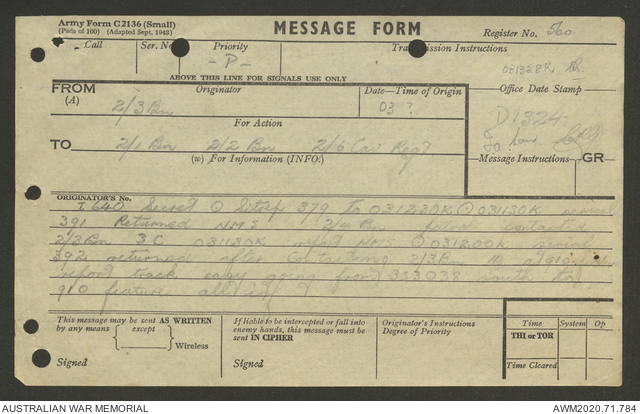 Army Form C2136 (Small)
(Pads of 100) (Adapted Sept. 1943)
MESSAGE FORM
Register No. 560
Call
Ser. No.
Priority
Transmission Instructions
- P -
031328K
ABOVE THIS LINE FOR SIGNALS USE ONLY
FROM
(A)
Originator
Date—Time of Origin
Office Date Stamp
2/3 Bn
03 ?
D1324
For Action
TO
2/1 Bn 2/2 Bn 2/6 Cav Regt
(W) For Information (INFO:)
Message Instructions
GR
ORIGINATOR'S No.
I 640 Secret O Sitrep 379 to 031230K O 031130K serial
391 Returned NMS 2/2 Bn contact
2/3 Bn 3 C 031130K report NMS O 031200K serial
392 returned after contacting 2/3 Bn
report track easy going from 353038 south to
910 feature all
This message may be sent AS WRITTEN
by any means except
Wireless
Signed
If liable to be intercepted or fall into
enemy hands, this message must be
sent IN CIPHER
Signed
Originator's Instructions
Degree of Priority
Time
System
Op
THI or TOR
Time Cleared
AUSTRALIAN WAR MEMORIAL
AWM2020.71.784